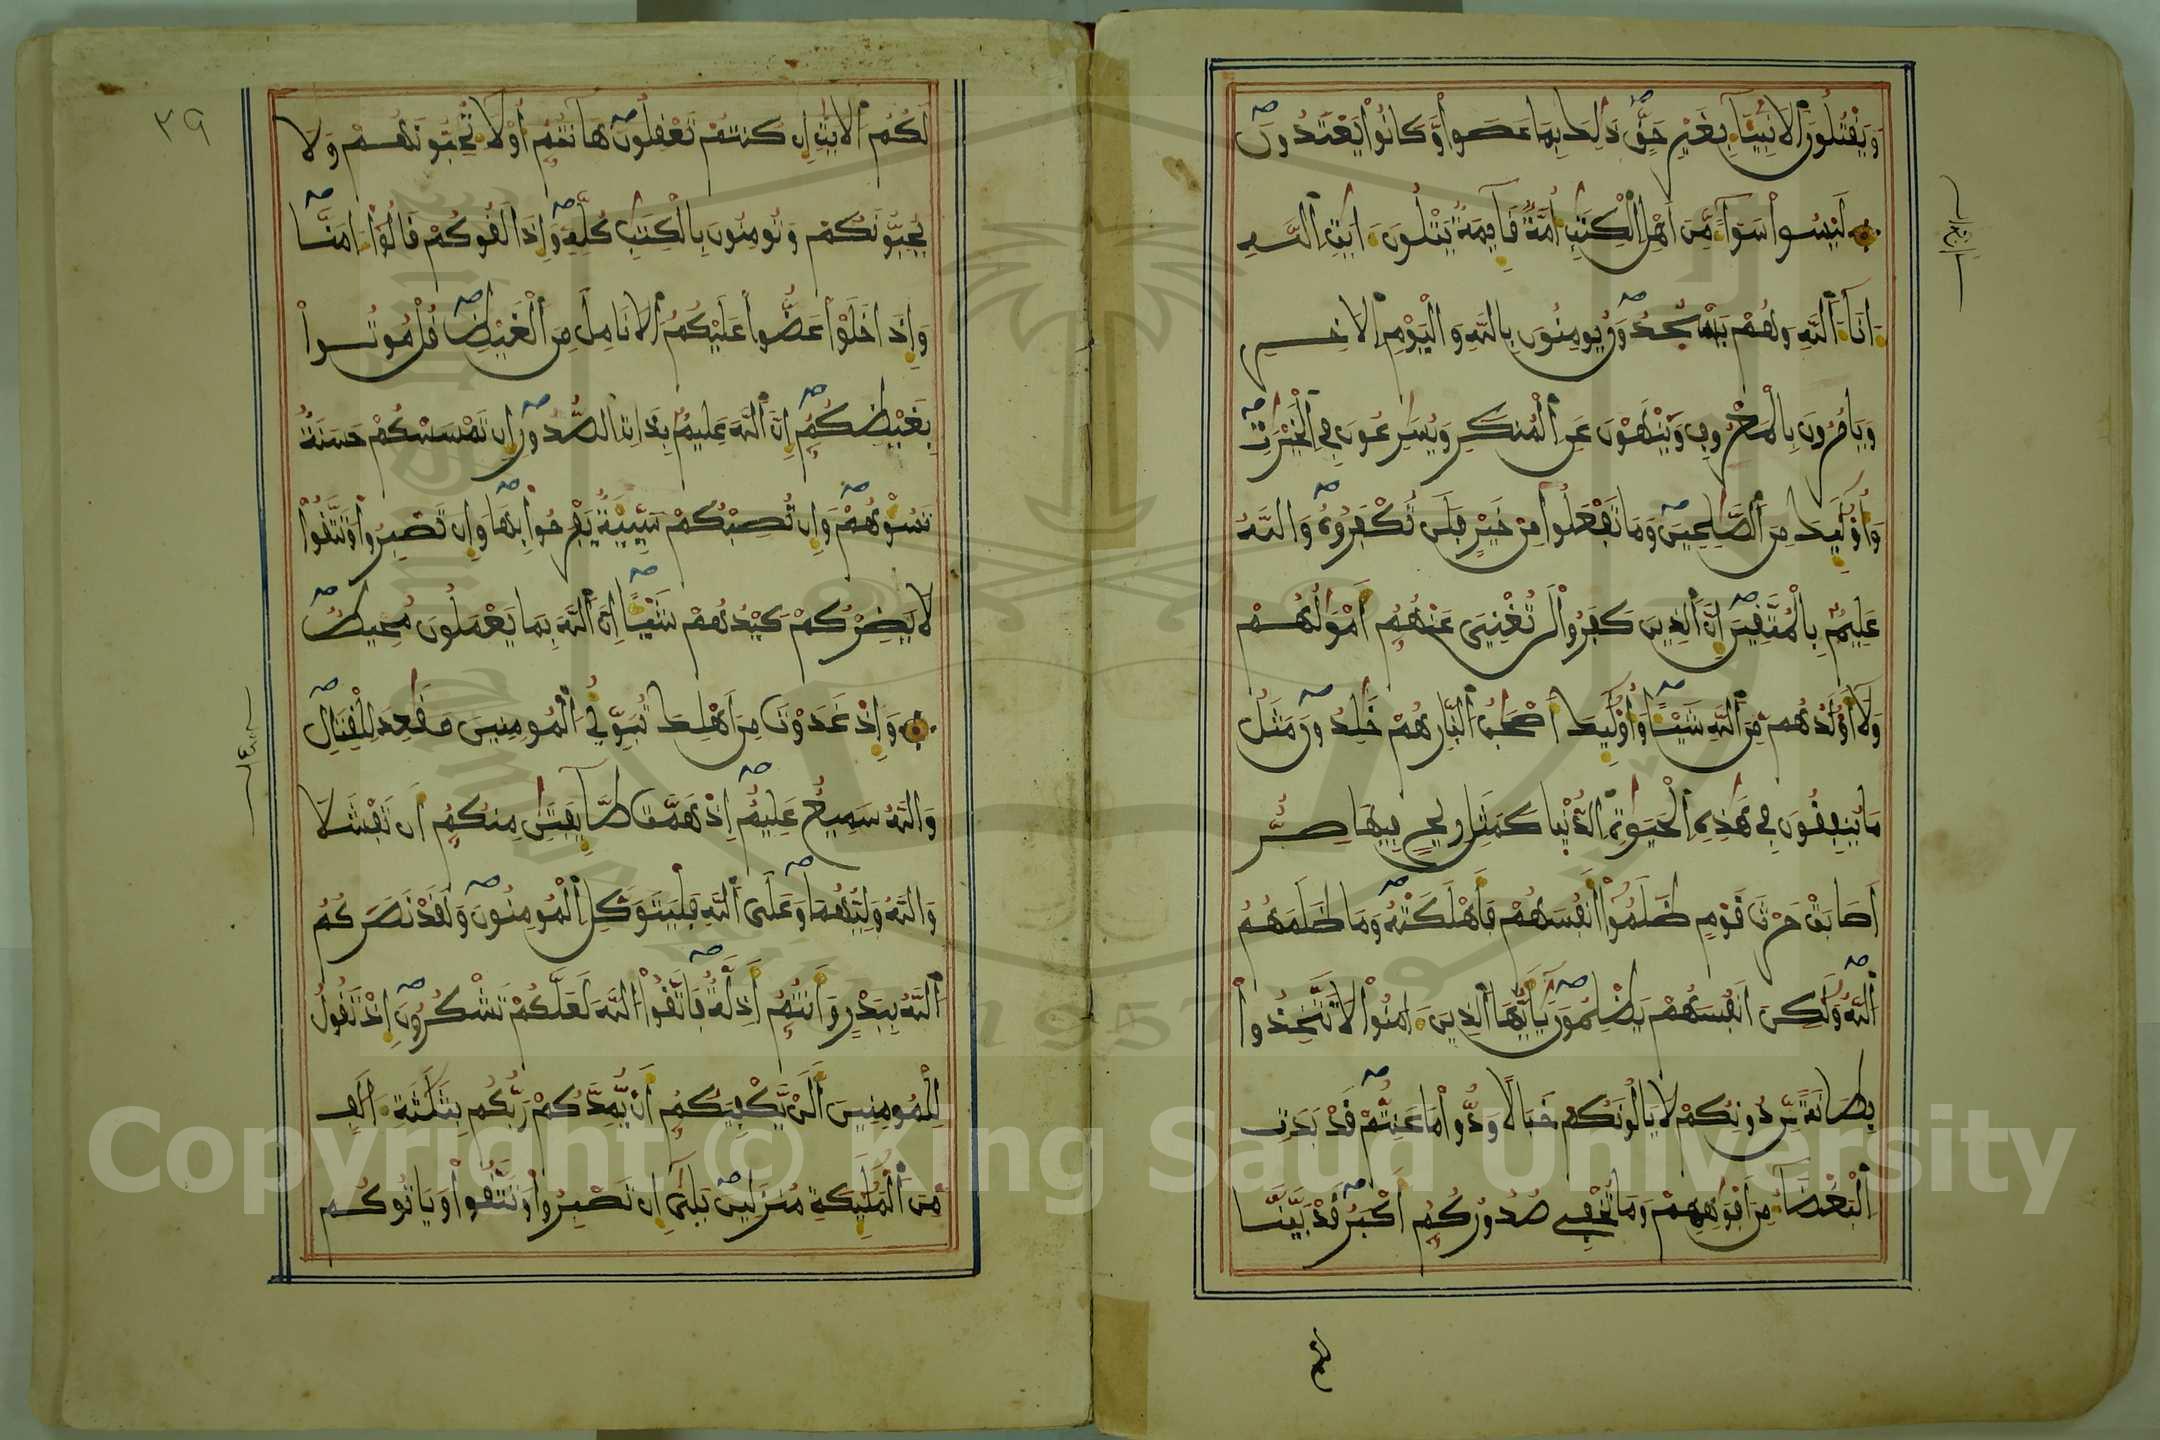 وَيَقْتُلُونَ ٱلَانۢبِيَآءَ بِغَيْرِ حَقٍّ ذَٰلِكَ بِمَا عَصَواْ وَّكَانُواْ يَعْتَدُونَ
لَيْسُواْ سَوَآءٗ مِّنَ اَهْلِ ٱلْكِتَٰبِ أُمَّةٞ قَآئِمَةٞ يَتْلُونَ ءَايَٰتِ ٱللَّهِ
ءَانَآءَ ٱلَّيْلِ وَهُمْ يَسْجُدُونَ يُومِنُونَ بِاللَّهِ وَالْيَوْمِ ٱلَاخِرِ
وَيَامُرُونَ بِالْمَعْرُوفِ وَيَنْهَوْنَ عَنِ ٱلْمُنكَرِ وَيُسَٰرِعُونَ فِے ٱلْخَيْرَٰتِ
وَأُوْلَٰٓئِكَ مِنَ ٱلصَّٰلِحِينَ وَمَا تَفْعَلُواْ مِنْ خَيْرٖ فَلَن تُكْفَرُوهُ وَاللَّهُ
عَلِيمُۢ بِالْمُتَّقِينَ إِنَّ ٱلذِينَ كَفَرُواْ لَن تُغْنِيَ عَنْهُمُۥٓ أَمْوَٰلُهُمْ
وَلَآ أَوْلَٰدُهُم مِّنَ ٱللَّهِ شَيْـٔاٗ وَأُوْلَٰٓئِكَ أَصْحَٰبُ ٱلنّارِ هُمْ فِيهَا خَٰلِدُونَ مَثَلُ
مَا يُنفِقُونَ فِے هَٰذِهِ ٱلْحَيَوٰةِ ٱلدُّنْيا كَمَثَلِ رِيحٖ فِيهَا صِرٌّ
اَصَابَتْ حَرْثَ قَوْمٖ ظَلَمُوٓاْ أَنفُسَهُمْ فَأَهْلَكَتْهُ وَمَا ظَلَمَهُمُ
ٱللَّهُ وَلَٰكِنَ اَنفُسَهُمْ يَظْلِمُونَ يَٰٓأَيُّهَا ٱلذِينَ ءَامَنُواْ لَا تَتَّخِذُواْ
بِطَانَةٗ مِّن دُونِكُمْ لَا يَالُونَكُمْ خَبَالٗا وَدُّواْ مَا عَنِتُّمْ قَدْ بَدَتِ
ٱلْبَغْضَآءُ مِنَ اَفْوَٰهِهِمْ وَمَا تُخْفِے صُدُورُهُمُۥٓ أَكْبَرُ قَدْ بَيَّنَّا
لَكُمُ
٣٩
لَكُمُ ٱلَايَٰتِ إِن كُنتُمْ تَعْقِلُونَ هَآنتُمُۥٓ أُوْلَآءِ تُحِبُّونَهُمْ وَلَا
يُحِبُّونَكُمْ وَتُومِنُونَ بِالْكِتَٰبِ كُلِّهِ وَإِذَا لَقُوكُمْ قَالُوٓاْ ءَامَنَّا
وَإِذَا خَلَوْاْ عَضُّواْ عَلَيْكُمُ ٱلَانَامِلَ مِنَ ٱلْغَيْظِ قُلْ مُوتُواْ
بِغَيْظِكُمُۥٓ إِنَّ ٱللَّهَ عَلِيمُۢ بِذَاتِ ٱلصُّدُورِ إِن تَمْسَسْكُمْ حَسَنَةٞ
تَسُؤْهُمْ وَإِن تُصِبْكُمْ سَيِّئَةٞ يَفْرَحُواْ بِهَا وَإِن تَصْبِرُواْ وَتَتَّقُواْ
لَا يَضِرْكُمْ كَيْدُهُمْ شَيْـٔاً إِنَّ ٱللَّهَ بِمَا يَعْمَلُونَ مُحِيطٞ
وَإِذْ غَدَوْتَ مِنَ اَهْلِكَ تُبَوِّئُ ٱلْمُومِنِينَ مَقَٰعِدَ لِلْقِتَالِ
وَاللَّهُ سَمِيعٌ عَلِيمٌ إِذْ هَمَّت طَّآئِفَتَٰنِ مِنكُمُۥٓ أَن تَفْشَلَا
وَاللَّهُ وَلِيُّهُمَا وَعَلَى ٱللَّهِ فَلْيَتَوَكَّلِ ٱلْمُومِنُونَ وَلَقَدْ نَصَرَكُمُ
ٱللَّهُ بِبَدْرٖ وَأَنتُمُۥٓ أَذِلَّةٞ فَاتَّقُواْ ٱللَّهَ لَعَلَّكُمْ تَشْكُرُونَ إِذْ تَقُولُ
لِلْمُومِنِينَ أَلَنْ يَّكْفِيَكُمُۥٓ أَنْ يُّمِدَّكُمْ رَبُّكُم بِثَلَٰثَةِ ءَالَٰفٖ
مِّنَ ٱلْمَلَٰٓئِكَةِ مُنزَلِينَ بَلَىٰٓ إِن تَصْبِرُواْ وَتَتَّقُواْ وَيَاتُوكُم
Copyright © King Saud University
1957